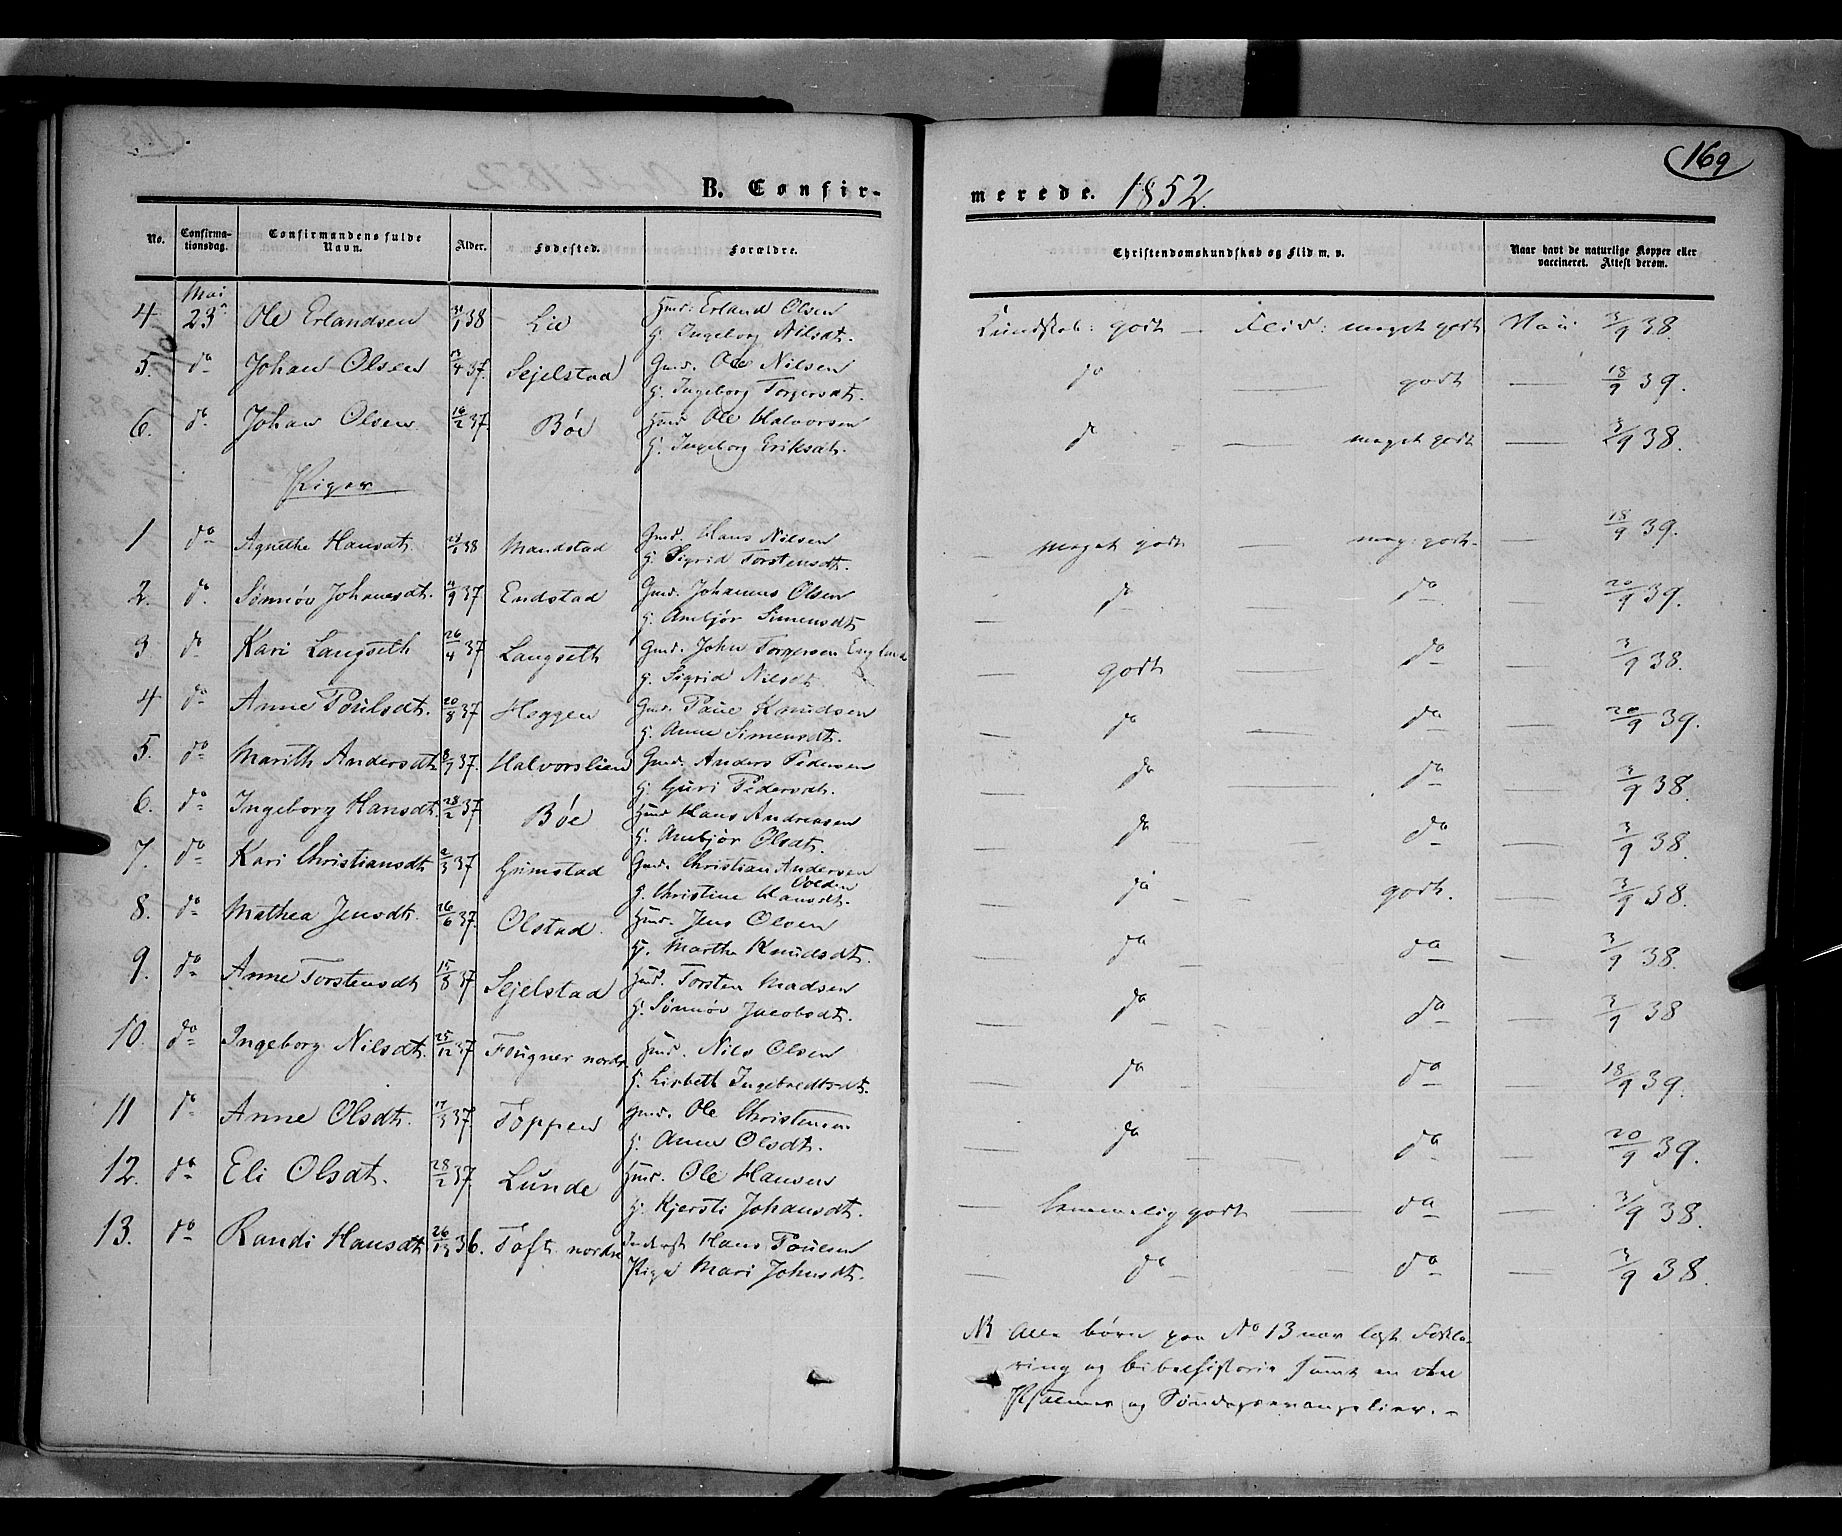 169
B. Confir-
merede. 1852.
No. Confirma-tionsdag. Confirmandens fulde Navn. Alder. Fødested. Forældre. Christendomskundskab og Flid m. v. Naar havt de naturlige Kopper eller vaccineret. Attest derom.
Mai
4 23 Ole Erlandsen 38 Lie Huusm. Erland Olsen Kundskab: godt — Flid: meget godt 3/9 38.
H. Ingeborg Nilsdt.
5. do Johan Olsen 37. Sejelstad Gmd. Ole Nilsen do — godt — 18/9 39.
H. Ingeborg Torgersdt.
6. do Johan Olsen 16/2 37. Bøe Hmd Ole Halvorsen do — meget godt — 3/9 38.
H. Ingeborg Eriksdt.
Piger
1 do Agnethe Hansdt. 38 Mandstad Gmd. Hans Nilsen — meget godt — meg. godt — 18/9 39.
H. Sigrid Torstensdt.
2. do Sønnøv Johannesdt. 37 Endstad Gmd. Johannes Olsen — do — do — 20/9 39.
H. Ambjør Simensdt.
3 do Kari Langseth 26/4 37 Langseth Gmd. John Torgersen godt — do 3/9 38.
H. Sigrid Nilsdt
4 do Anne Poulsdt. 20/8 37 Heggen Gmd. Poul Knudsen — do — do — 20/9 39.
H. Anne Simensdt.
5. do Marith Andersdt 37. Halvorslien Gmd. Anders Pedersen — do — do — 3/9 38.
H. Guri Pedersdt.
6. do Ingeborg Hansdt. 28/2 37 Bøe Hmd Hans Andreasen — do — do — 3/9 38.
H. Ambjør Olsdt.
7. do Kari Christiansdt 37 Grimstad Gmd. Christian Andersen — do — godt. — 3/9 38.
H. Christine Hansdt.
8. do Mathea Jensdt. 26/6 37. Olstad. Hmd. Jens Olsen — do — do — 3/9 38.
H. Marthe Knudsdt.
9. do Anne Torstensdt 15/8 37 Sejelstad Hmd. Torsten Madsen — do — do — 3/9 38
H. Sønnøv Jacobsdt.
10. do Ingeborg Nilsdt. 25/12 37 Fougner nordre Hmd. Nils Olsen — do — do — 18/9 39.
H. Lisbeth Ingebredtsdt.
11 do Anne Olsdt. 17/3 37 Toppen Gmd. Ole Christensen — do — do — 20/9 39.
H. Anne Olsdt.
12. do Eli Olsdt. 28/2 37. Lunde Hmd. Ole Hansen — temmelig godt — do — 3/9 38.
H. Kjersti Johansdt.
13. do Randi Hansdt 26/12 36. Toft nordre Inderst Hans Poulsen — do — do — 3/9 38.
Pige Mari Johnsdt.
NB Alle børn paa No 13 nær læst Forkla-
ring og bibelhistorie samt en Del
Psalmer og Søndagsevangelier. —